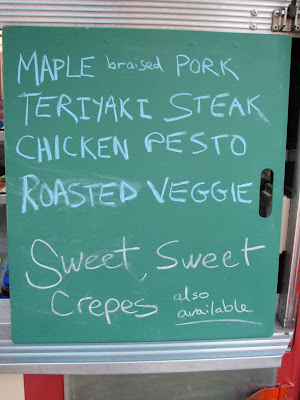 MAPLE braised PORK
TERIYAKI STEAK
CHICKEN PESTO
ROASTED VEGGIE
Sweet, Sweet
Crepes also
available